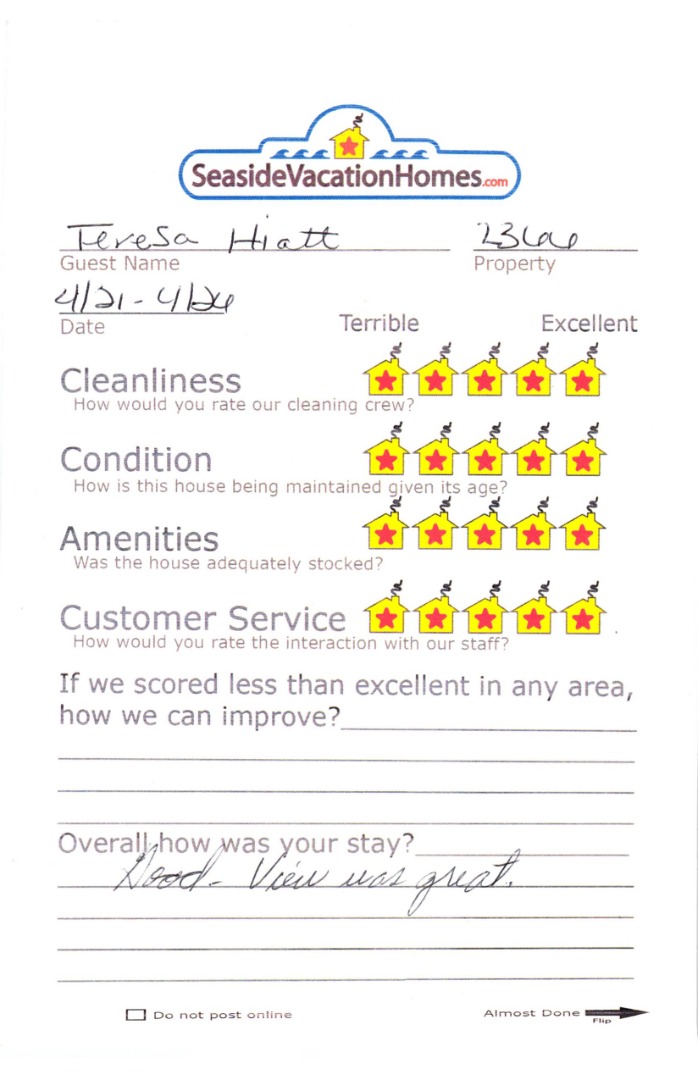 SeasideVacationHomes.com
Teresa Hiatt 2366
Guest Name Property
4/21 - 4/26
Date
Terrible Excellent
Cleanliness
How would you rate our cleaning crew?
Condition
How is this house being maintained given its age?
Amenities
Was the house adequately stocked?
Customer Service
How would you rate the interaction with our staff?
If we scored less than excellent in any area,
how we can improve?
Overall how was your stay?
Good - View was great.
Do not post online Almost Done
Flip